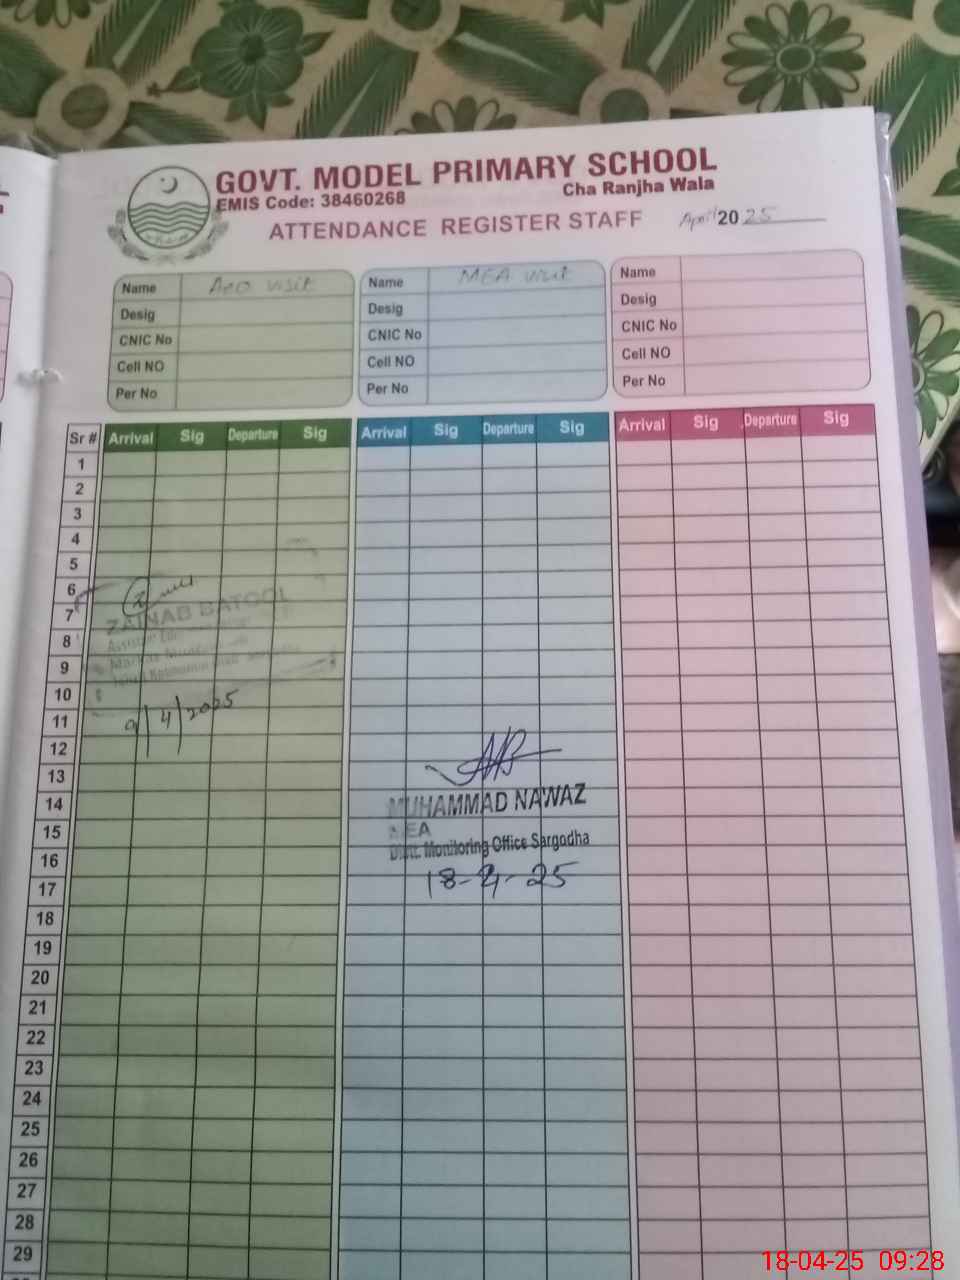 GOVT. MODEL PRIMARY SCHOOL
EMIS Code: 38460268
Cha Ranjha Wala
ATTENDANCE REGISTER STAFF
April 2025
Name Aeo visit
Desig
CNIC No
Cell NO
Per No
Name MEA visit
Desig
CNIC No
Cell NO
Per No
Name
Desig
CNIC No
Cell NO
Per No
Sr # Arrival Sig Departure Sig Arrival Sig Departure Sig Arrival Sig Departure Sig
1
2
3
4
5
6
7
8
9
10
11
12
13
14
15
16
17
18
19
20
21
22
23
24
25
26
27
28
29
ZAINAB BATOOL
9/4/2025
MUHAMMAD NAWAZ
MEA
Distt. Monitoring Office Sargodha
18-4-25
18-04-25 09:28